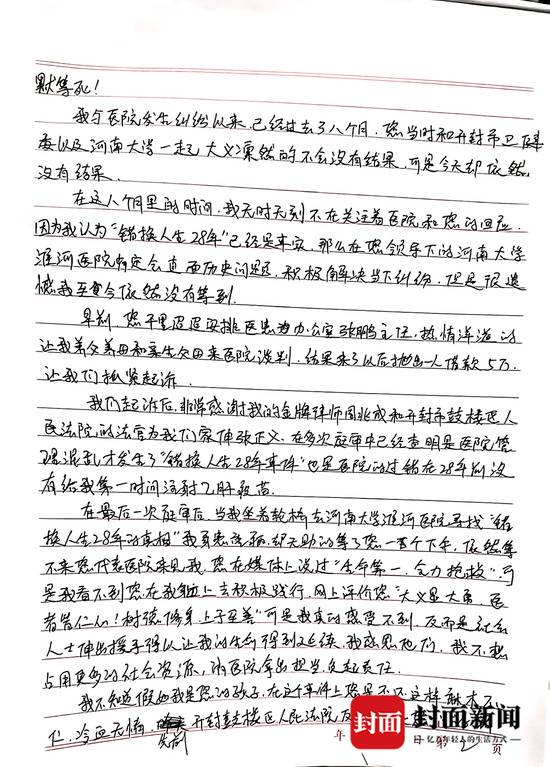 默等死！
我与医院发生纠纷以来，已经过去了八个月，您当时和开封市卫健
委以及河南大学一起，大义凛然的不会没有结果，可是今天却依然
没有结果。
在这八个月里的时间，我无时无刻不在关注着医院和您的回应，
因为我认为"错换人生28年"已经是事实，那么在您领导下的河南大学
淮河医院肯定会直面历史问题，积极解决当下纠纷，但是很遗
憾我至今依然没有等到。
早前，您千里迢迢安排医患办办公室张鹏主任，热情洋溢的
让我养父养母和亲生父母来医院谈判，结果来了以后抛出一人借款5万，
让我们抓紧起诉。
我们起诉后，非常感谢我的金牌律师周兆成和开封市鼓楼区人
民法院的法官为我们家伸张正义，在多次庭审中已经查明是医院管
理混乱才发生了"错换人生28年事件"也是医院的过错在28年前没
有给我第一时间注射乙肝疫苗。
在最后一次庭审后，当我坐着轮椅去河南大学淮河医院寻找"错
换人生28年的真相"我身患癌症，却无助的等了您一百个下午，依然等
不来您代表医院来见我，您在媒体上说过"生命第一，全力抢救"，可
是我看不到您在我身上去积极践行，网上评价您"大义显大勇，医
者皆仁心！树德修身，上于至善"可是我真的感受不到，反而是社会
人士伸出援手得以让我的生命得到延续，我感恩他们，我不想
占用更多的社会资源，请医院拿出担当，负起责任。
我不知道假如我是您的孩子，在这个事件上您是不是这样麻木不
仁，冷血无情，先前开封鼓楼区人民法院
封面 封面新闻
亿万年轻人的生活方式
年
第2页